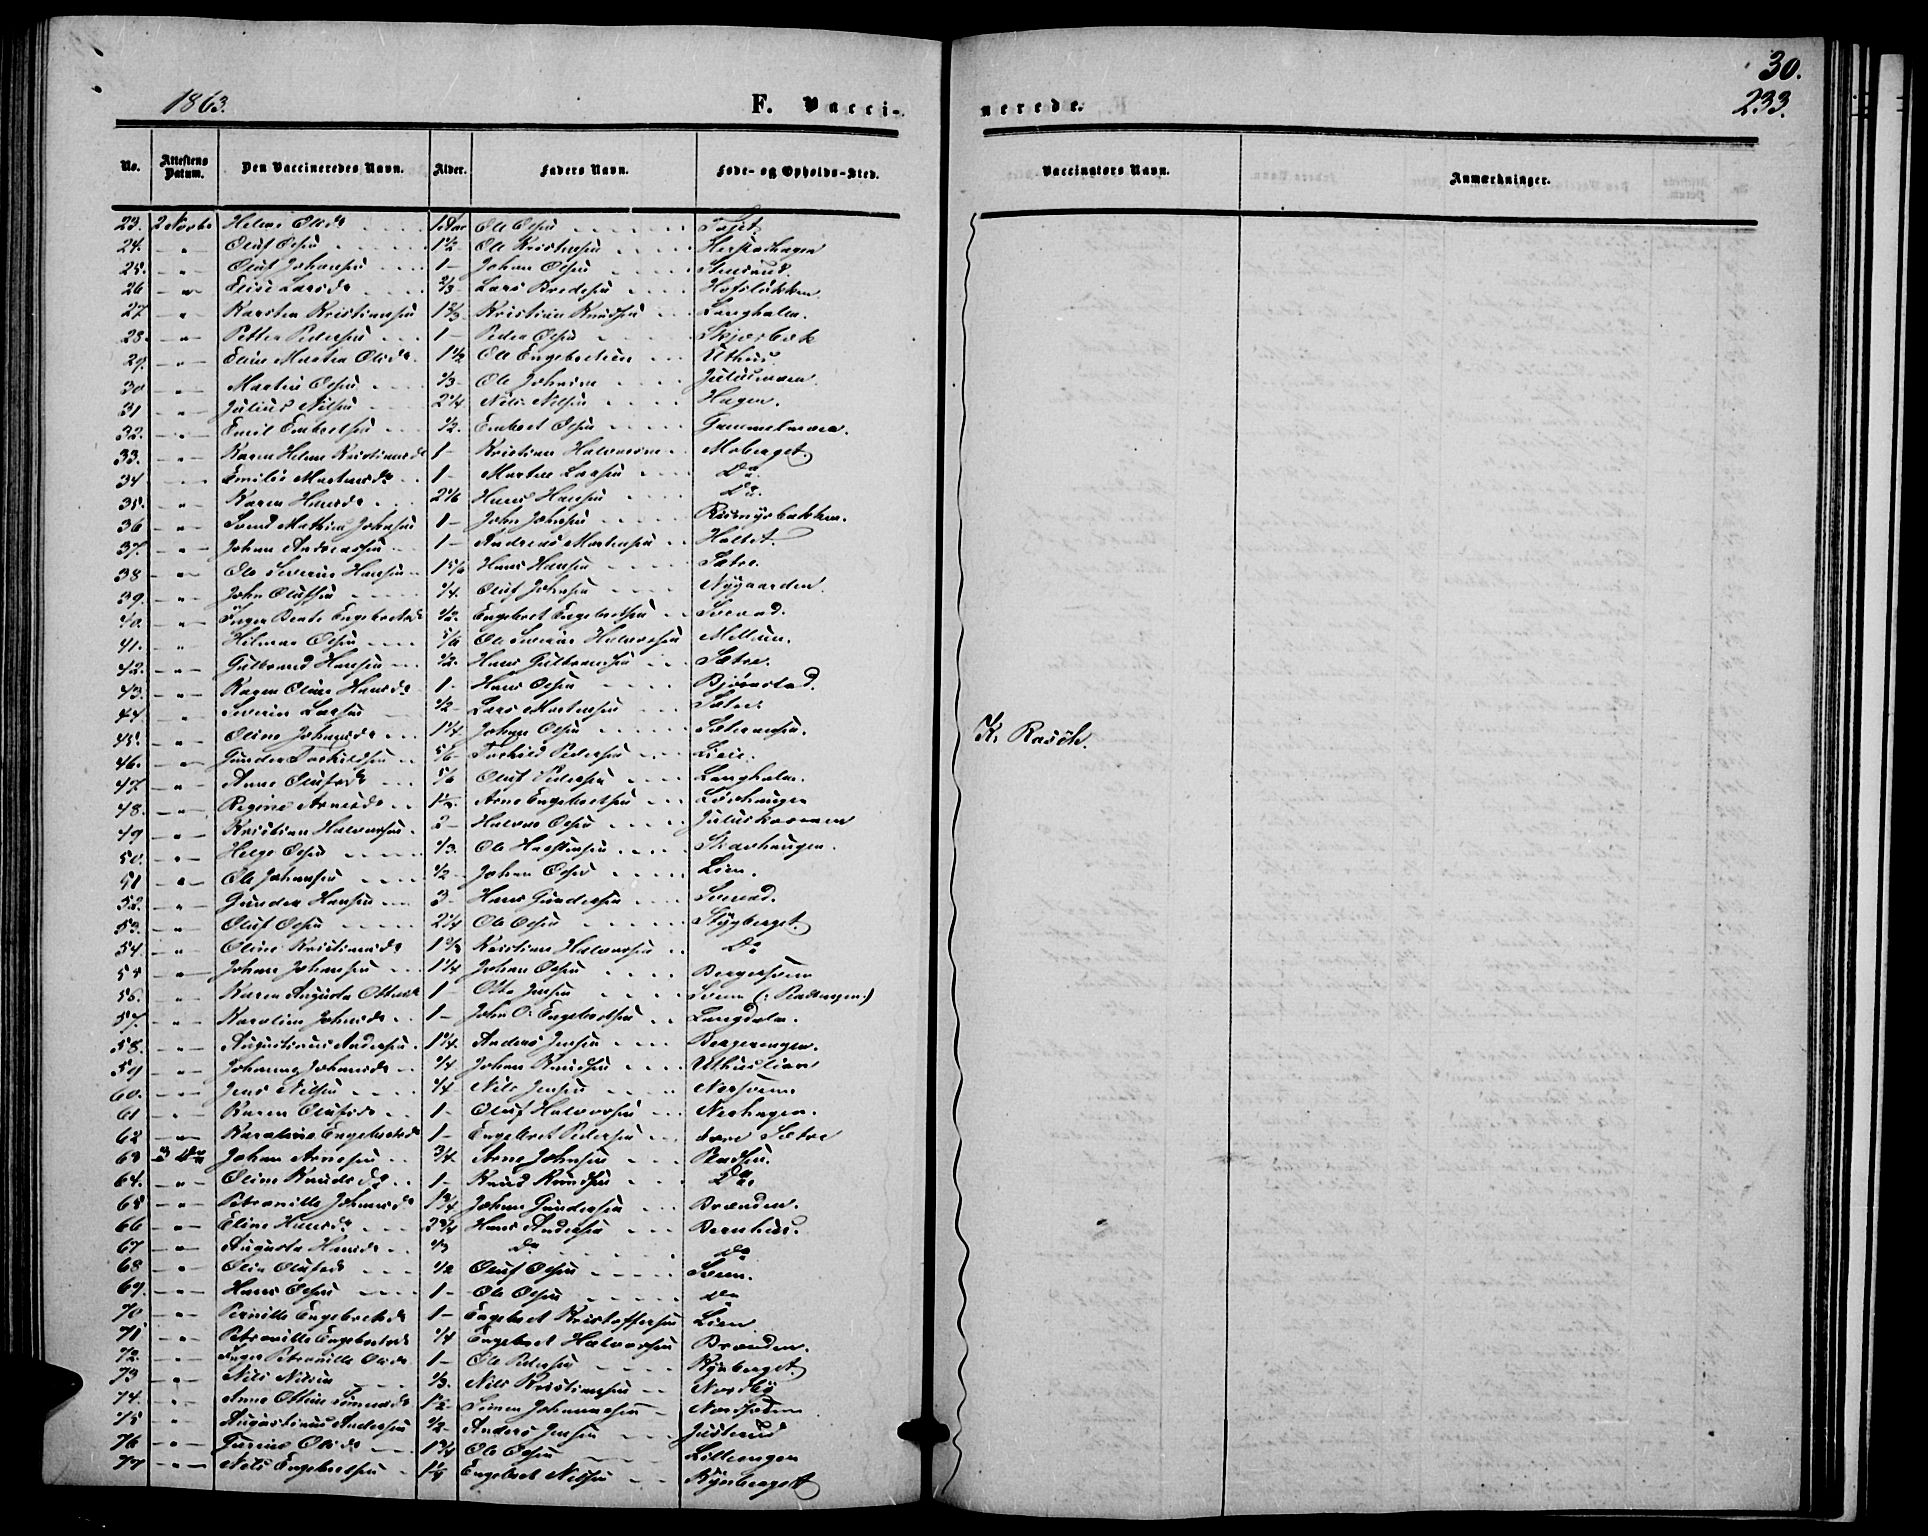 30.
1863. F. Vacci- nerede. 233.
No. Attestens Datum. Den Vaccineredes Navn. Alder. Faders Navn. Føde- og Opholds-Sted. Vaccinators Navn. Anmærkninger.
23. 2 Novbr Helene Olsdr Ole Olsen
24. " Oluf Olsen 1½ Ole Kristensen
25. " Oluf Johansen 1 Johan Olsen
26 " Elise Larsdr Lars Bredesen Hofsløkken
27 " Karsten Kristiansen Kristian Knudsen Langholm.
28. " Petter Pedersen 1 Peder Olsen Skjærbæk
29. " Eline Martea Olsdr 1½ Ole Engebretsen Uthus
30 " Martin Olsen Ole Johnsen Julusmoen.
31 " Julius Nilsen 2¼ Nils Nilsen Hagen.
32. " Emil Embretsen ½. Embret Olsen Gammelmoen.
33. " Karen Helene Kristiansdr 1 Kristian Halvorsen Moberget.
34 " Emilie Martinsdr 1 Martin Larsen Do
35. " Karen Hansdr Hans Hansen Do.
36 " Svend Mathias Johnsen 1 John Johnsen
37. " Johan Andreassen 1 Andreas Mortensen Holtet.
38 " Ole Severin Hansen 1 5/6 Hans Hansen Sætre.
39. " John Olufsen ¼. Oluf Johnsen Nygaarden
40 " Inger Bente Engebretsdr ½. Engebret Engebretsen
41. " Hilmar Olsen 5/6 Ole Severin Halvorsen Mellum.
42. " Gulbrand Hansen ½. Hans Gulbrandsen Sætre.
43. " Karen Oline Hansdr 1 Hans Olsen Bjørnstad.
44 " Severin Larsen ½ Lars Mortensen Sætre
45. " Oline Johansdr 1¼ Johan Olsen
46. " Gunder Torkildsen 5/6 Torkild Pedersen Lien
47 " Anne Olufsdr 5/6 Oluf Pedersen Langholm.
48. " Regine Arnesdr Arne Engebretsen Løvhaugen
49 " Kristian Halvorsen. 2 Halvor Olsen
50. " Helge Olsen Ole Halstensen Skavhaugen.
51 " Ole Johansen ½ Johan Olsen Lien.
52. " Gunder Hansen 3 Hans Gundersen
53. " Oluf Olsen 2¼ Ole Olsen Stygberget.
54. " Oline Kristiansdr Kristian Halvorsen Do
55 " Johan Johansen 1¼ Johan Olsen Bergersveen
56. " Karen Augusta Ottosdr 1 Otto Jensen Sveen
57. " Karoline Johnsdr 1 John O. Engebretsen Langdalen.
58. " Augustinus Andersen. 1¼. Anders Jensen Bergerengen.
59 " Johanne Johansdr ¼ Johan Knudsen Uthuslien
60. " Jens Nilsen ¼ Nils Jensen Norsveen
61 " Karen Olufsdr 1 Oluf Halvorsen Nerhagen.
62 " Karoline Engebretsdr 1 Engebret Pedersen øvre Sætre
63 3 Do Johan Arnesen ¾. Arne Johnsen
64. " Oline Knudsdr 1 Knud Knudsen Do.
65 " Petronille Johansdr 1¾ Johan Gundersen Brænden.
66 " Eline Hansdr 2¾ Hans Andersen Bernhus.
67 " Augusta Hansdr Do Do
68 " Olia Olufsdr ½ Oluf Olsen Sveen.
69. " Hans Olsen 1 Ole Olsen Do
70 " Pernille Engebretsdr 1 Engebret Kristoffersen Lien
71 " Petronille Engebretsdr ¼ Engebret Halvorsen Brænden.
72. " Inger Petronille Olsdr 1 Ole Pedersen Rynberget
73 " Nils Nilsen Nils Kristiansen Nordby
74. " Anne Ottine Simensdr 1½ Simen Johannessen
75 " Augustinus Andersen ½ Anders Jensen Justerud
76 " Gurine Olsdr 1¾ Ole Olsen Lilleengen
77 " Nils Engebretsen Engebret Nilsen Rynberget
K. Rasch.